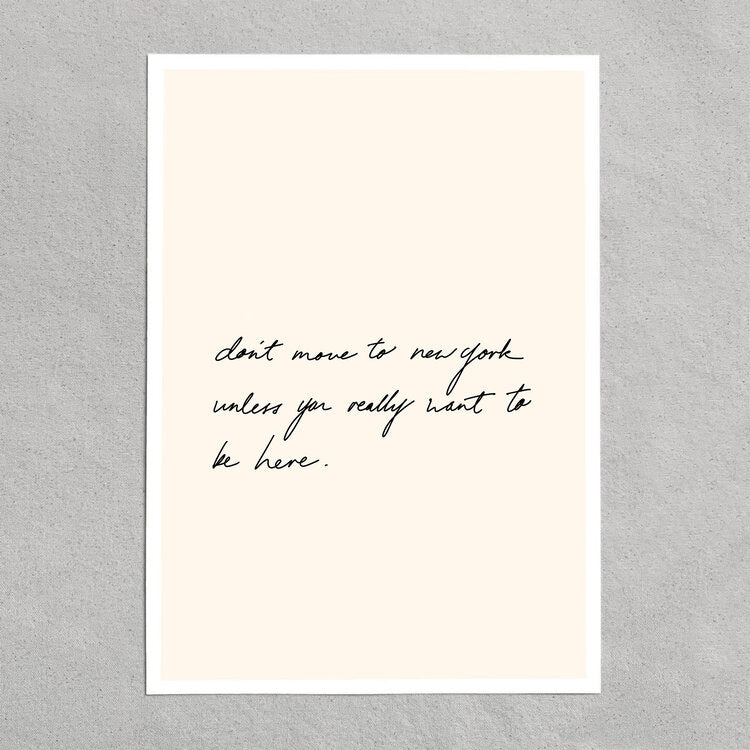 don't move to new york
unless you really want to
be here.